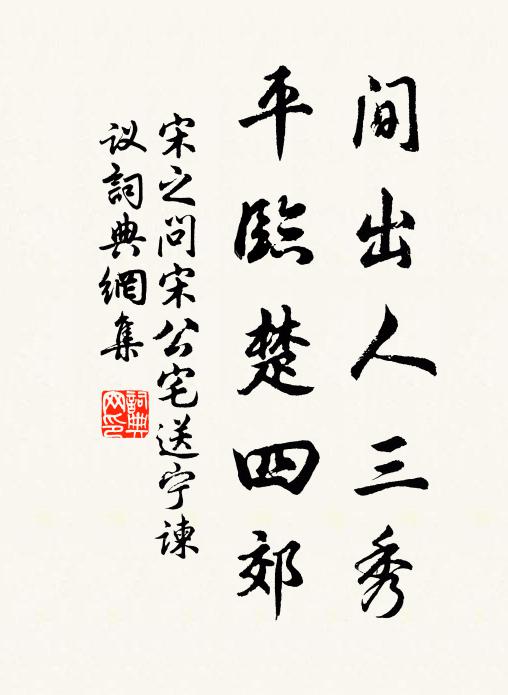 间出人三秀
平臨楚四郊
宋之问宋公宅送宁谏
议詞典網集
詞典网印